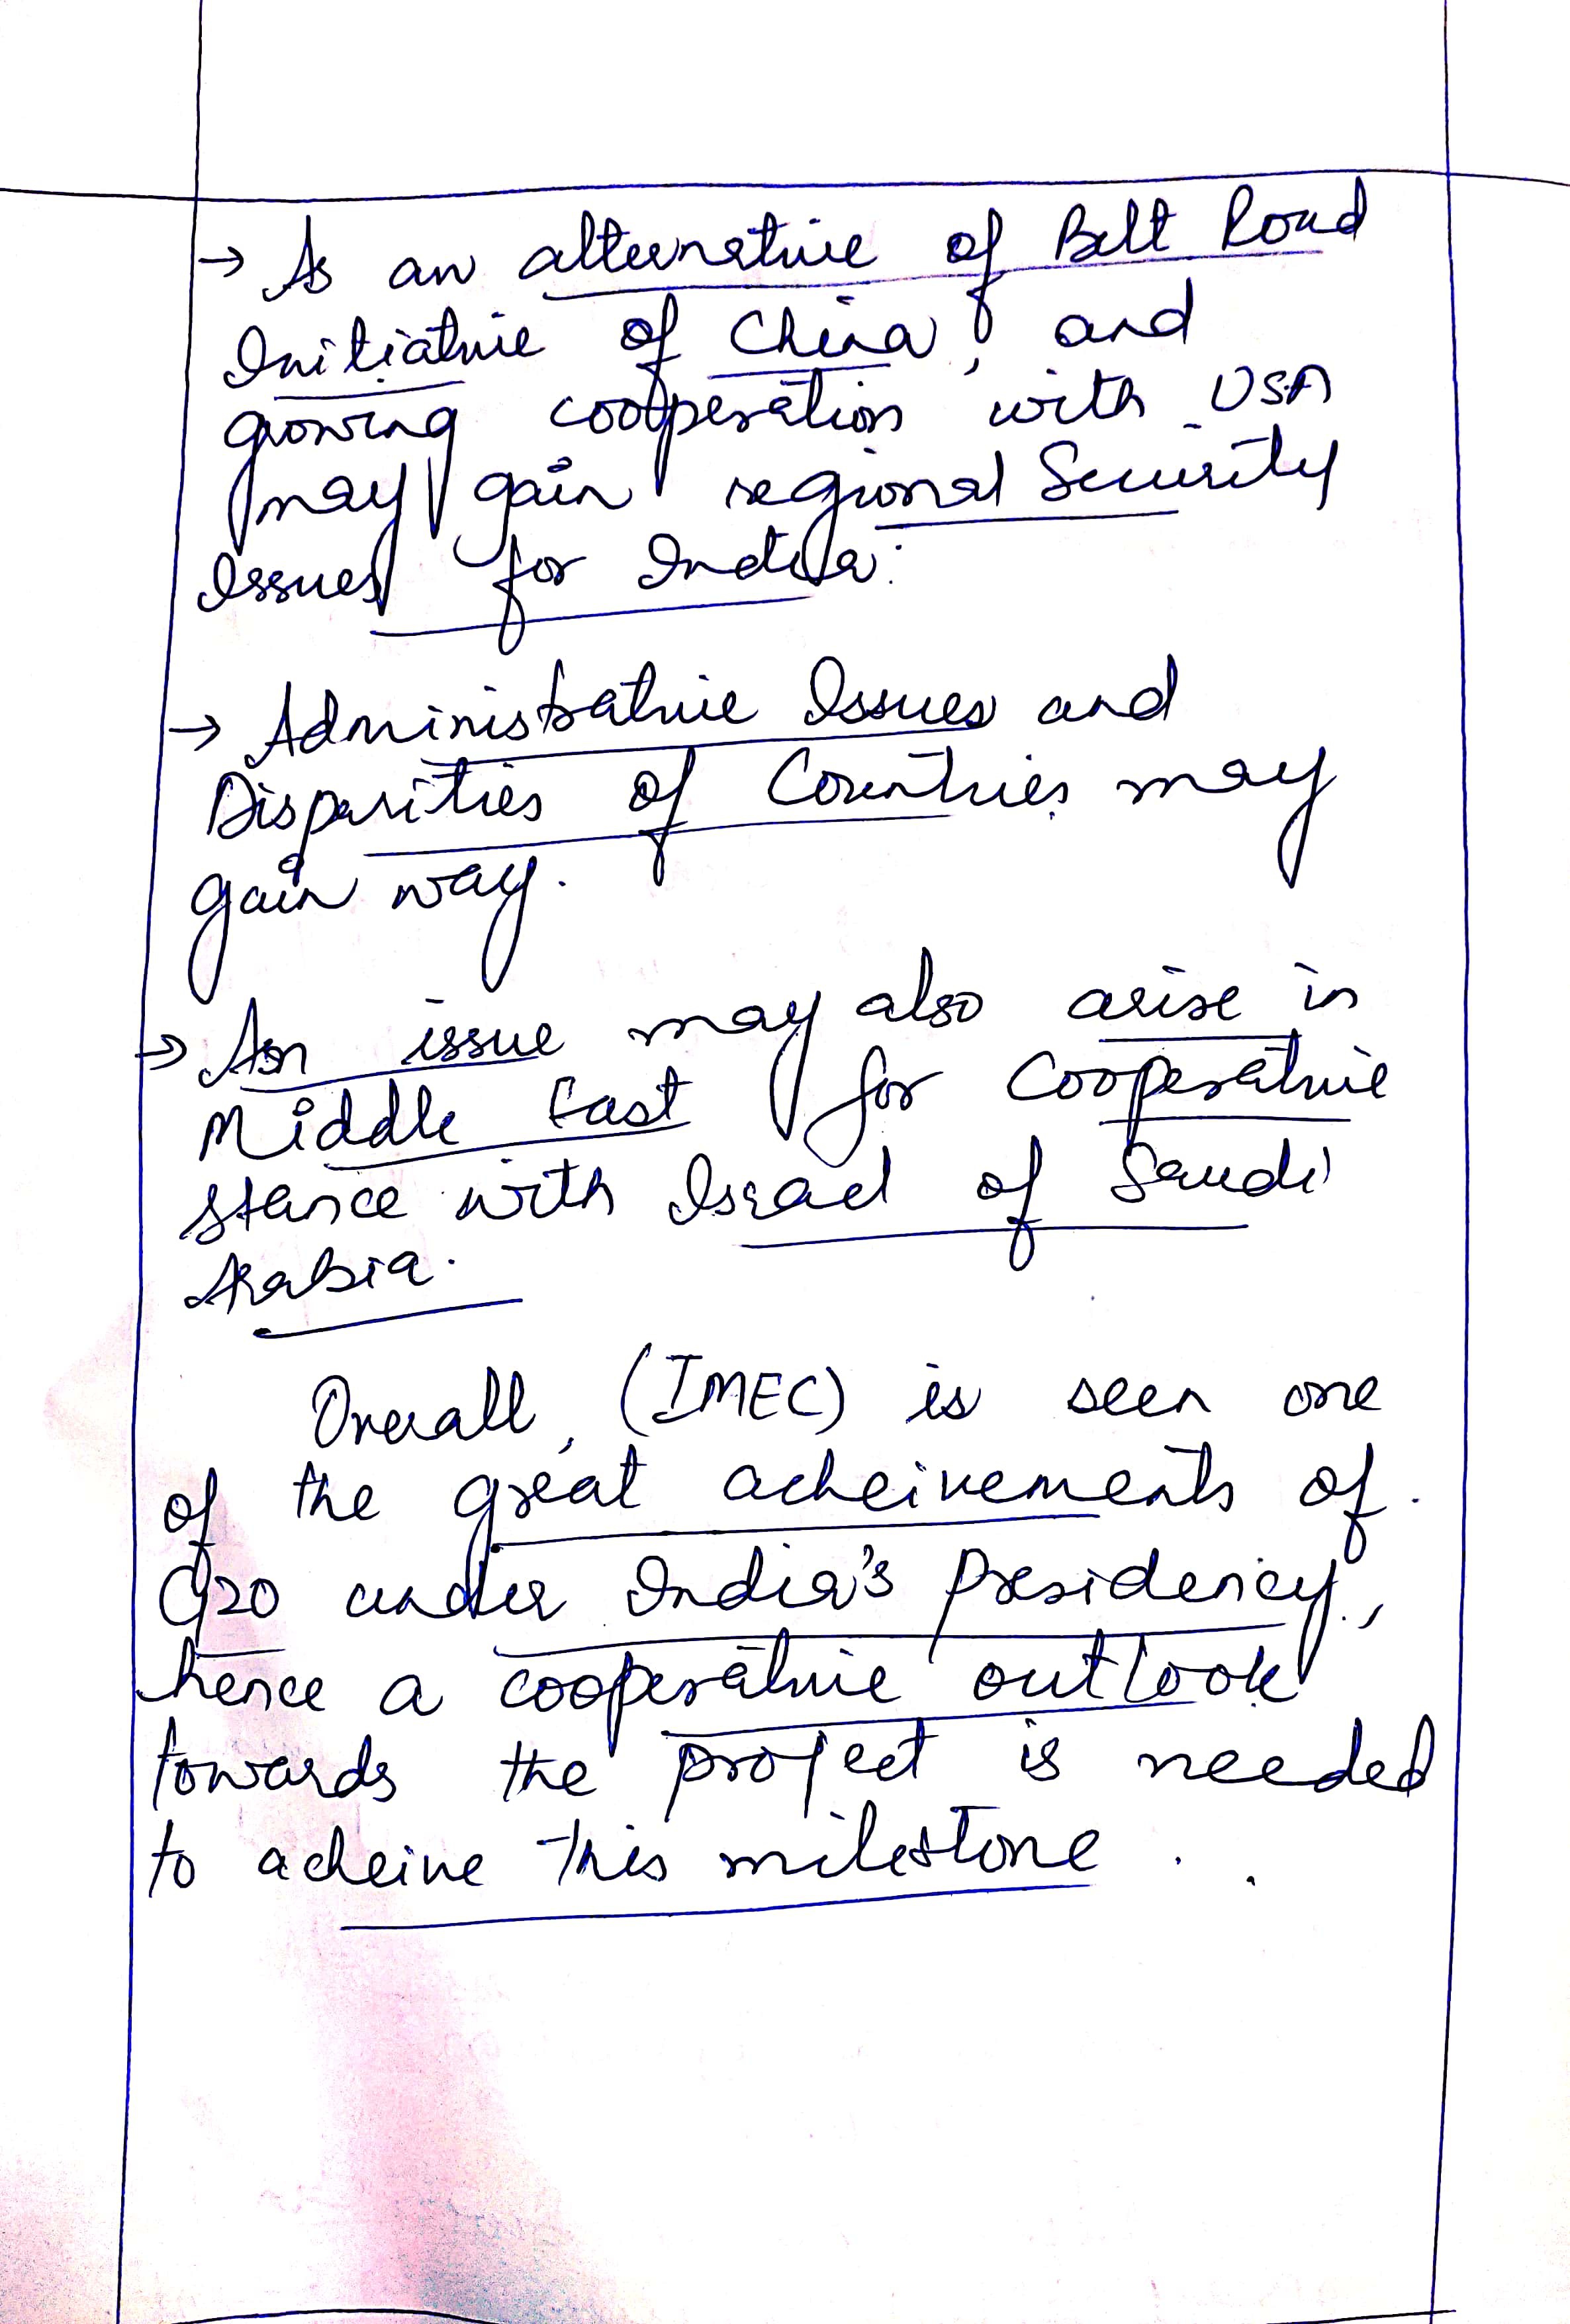 → As an alternative of Belt Road
Initiative of China, and
growing cooperation with USA
may gain regional Security
Issues for India.
→ Administrative Issues and
Disparities of Countries may
gain way.
→ An issue may also arise in
Middle East for Cooperative
stance with Israel of Saudi
Arabia.
Overall, (IMEC) is seen one
of the great acheivements of
G20 under India's Presidency,
hence a cooperative outlook
towards the project is needed
to acheive this milestone.